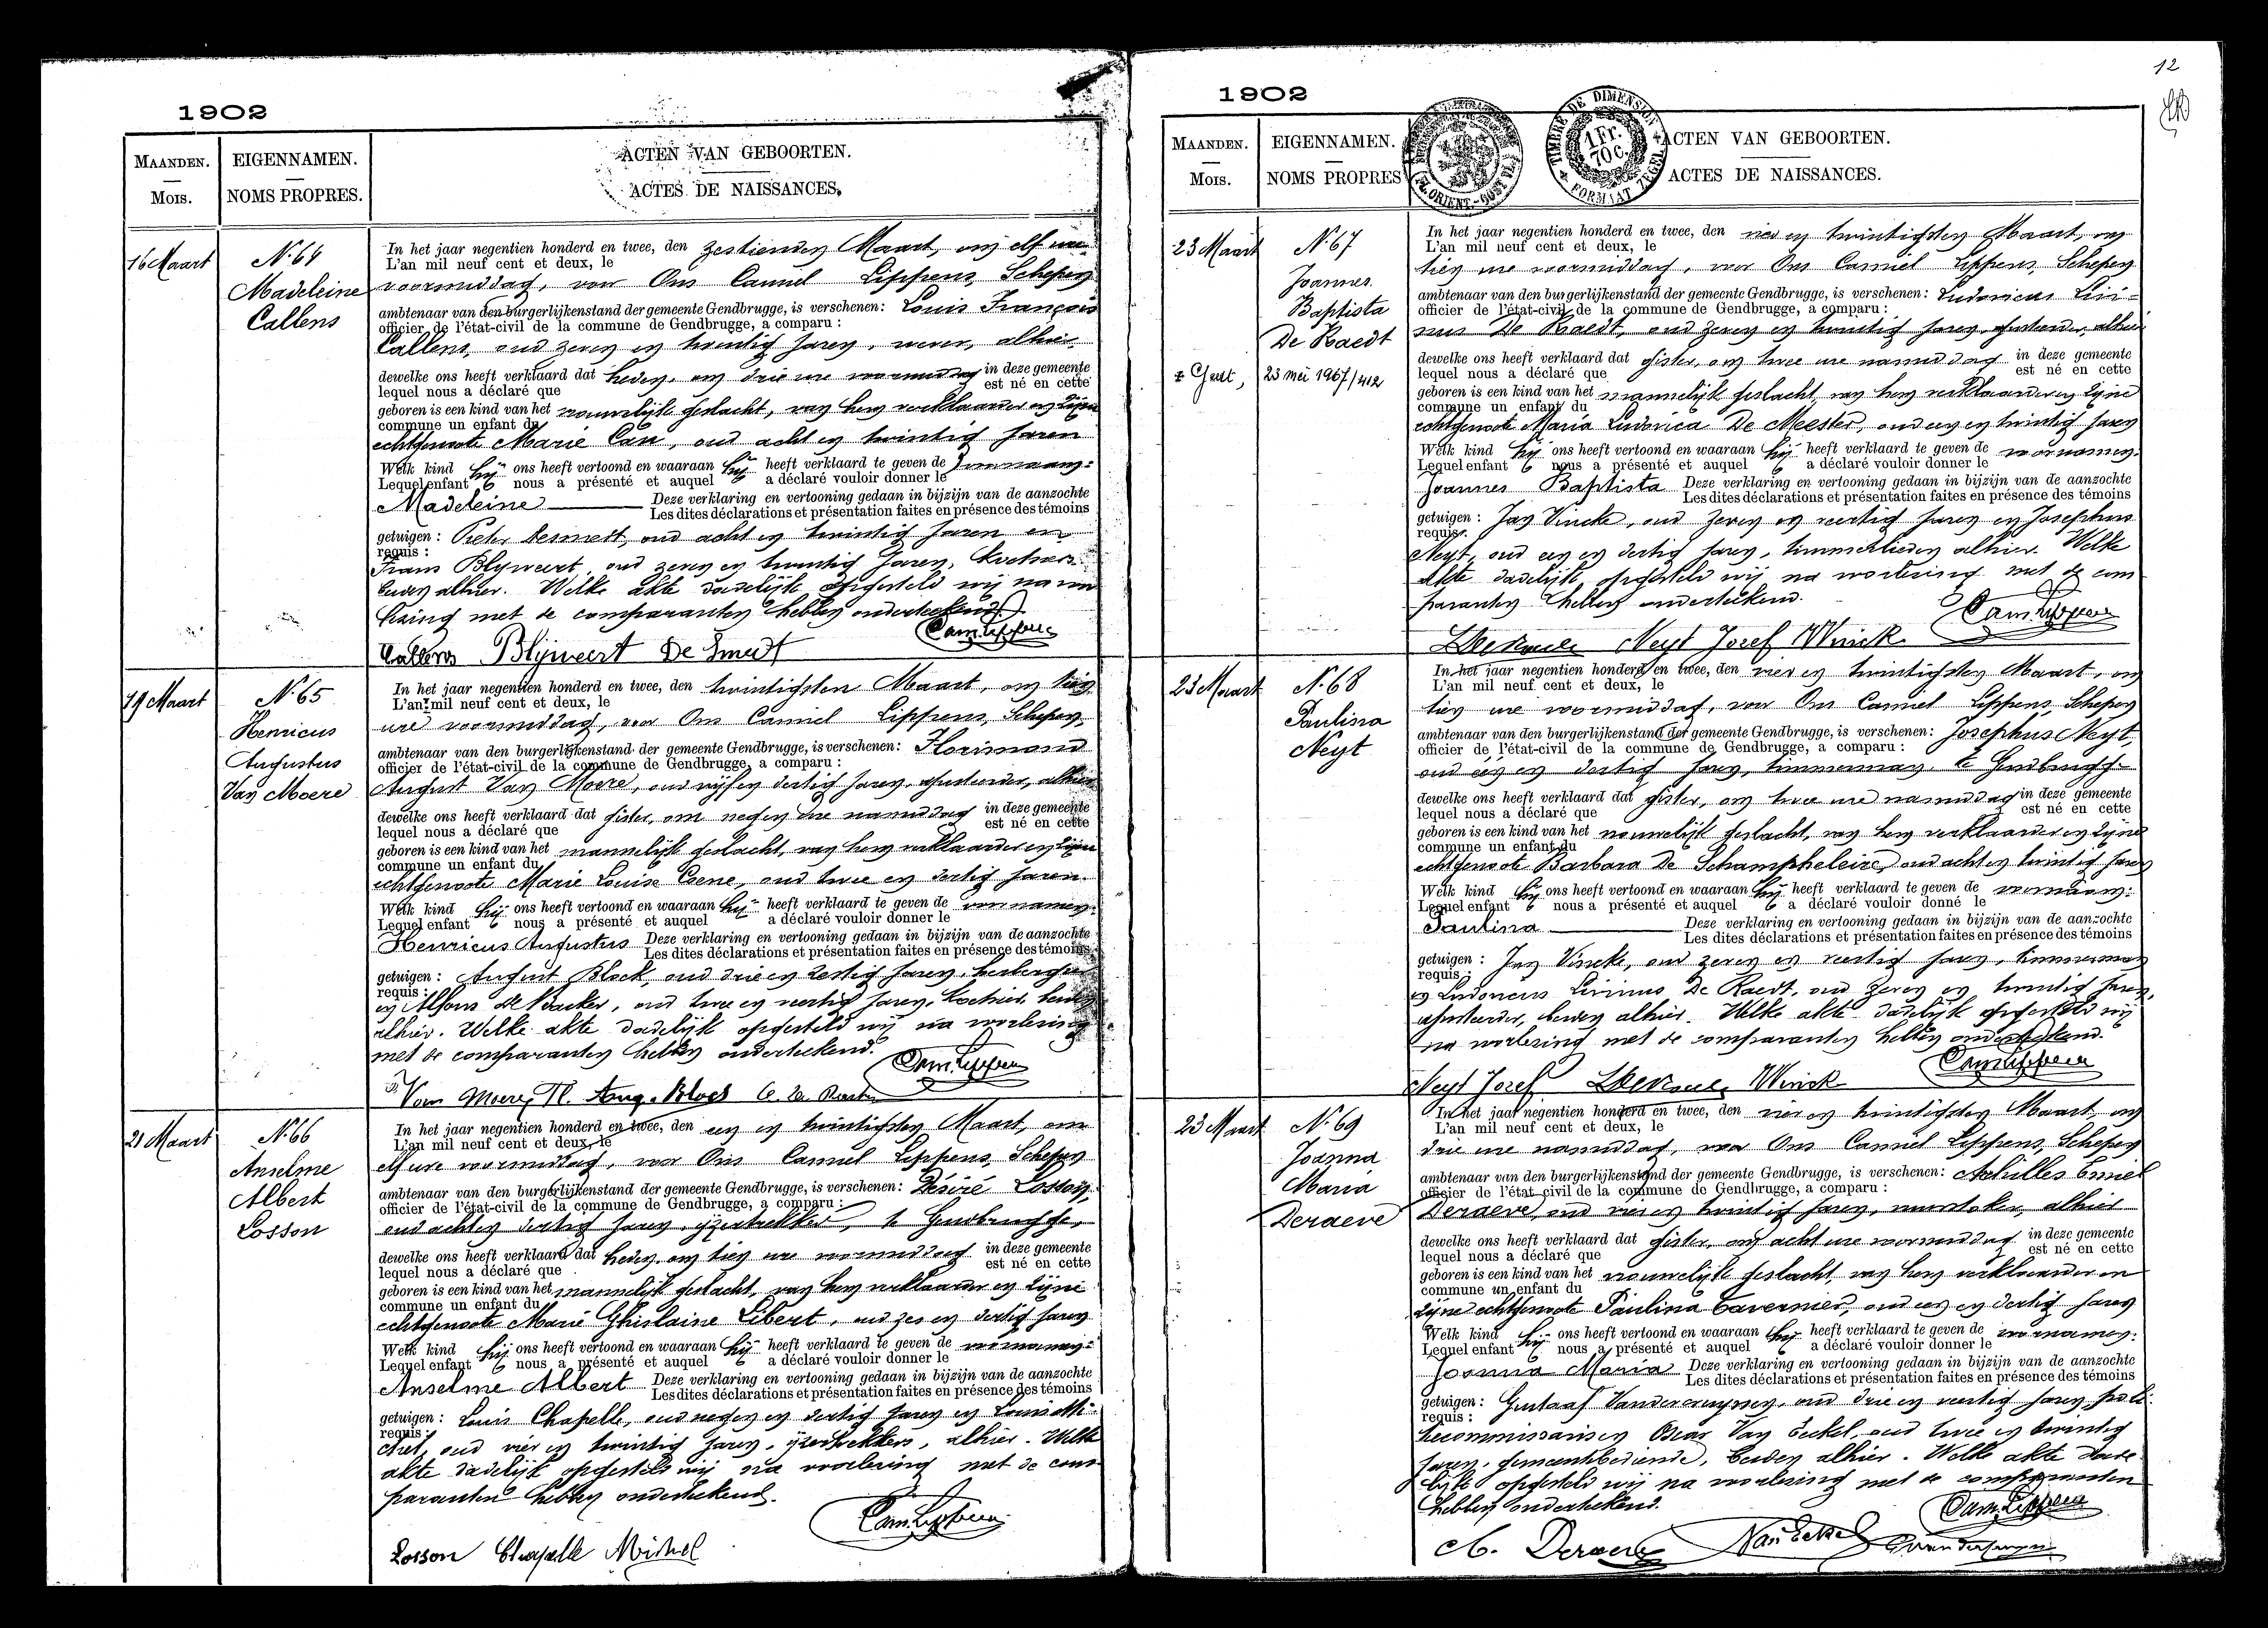 1902
MAANDEN.
Mois.
EIGENNAMEN.
NOMS PROPRES.
ACTEN VAN GEBOORTEN.
ACTES DE NAISSANCES.
16 Maart
N.64
Madeleine
Callens
In het jaar negentien honderd en twee, den zestienden Maart, om elf ure
L'an mil neuf cent et deux, le
voormiddag, voor Ons Camiel Lippens, Schepen
ambtenaar van den burgerlijkenstand der gemeente Gendbrugge, is verschenen: Louis François
officier de l'état-civil de la commune de Gendbrugge, a comparu :
Callens, oud zeven en twintig jaren, wever, alhier
dewelke ons heeft verklaard dat heden, om drie ure voormiddag in deze gemeente
lequel nous a déclaré que est né en cette
geboren is een kind van het vrouwelijk geslacht, van hem verklaarder en zijne
commune un enfant du
echtgenoote Marie Can, oud acht en twintig jaren
Welk kind hij ons heeft vertoond en waaraan hij heeft verklaard te geven de voornaam:
Lequel enfant nous a présenté et auquel a déclaré vouloir donner le
Madeleine Deze verklaring en vertooning gedaan in bijzijn van de aanzochte
Les dites déclarations et présentation faites en présence des témoins
getuigen : Pieter Desmedt, oud acht en twintig jaren en
requis :
Frans Blijweert, oud zeven en twintig jaren,
beiden alhier. Welke akte dadelijk opgesteld wij na voor
lezing met de comparanten hebben onderteekend.
Cam. Lippens
Callens Blijweert De Smedt
19 Maart
N.65
Henricus
Augustus
Van Moere
In het jaar negentien honderd en twee, den twintigsten Maart, om tien
L'an mil neuf cent et deux, le
ure voormiddag, voor Ons Camiel Lippens, Schepen
ambtenaar van den burgerlijkenstand der gemeente Gendbrugge, is verschenen: Florimond
officier de l'état-civil de la commune de Gendbrugge, a comparu :
August Van Moere, oud vijf en dertig jaren, ajusteerder, alhier
dewelke ons heeft verklaard dat gister, om negen ure namiddag in deze gemeente
lequel nous a déclaré que est né en cette
geboren is een kind van het mannelijk geslacht, van hem verklaarder en zijne
commune un enfant du
echtgenoote Marie Louise Coene, oud twee en dertig jaren
Welk kind hij ons heeft vertoond en waaraan hij heeft verklaard te geven de voornamen:
Lequel enfant nous a présenté et auquel a déclaré vouloir donner le
Henricus Augustus Deze verklaring en vertooning gedaan in bijzijn van de aanzochte
Les dites déclarations et présentation faites en présence des témoins
getuigen : August Block, oud drie en zestig jaren, herbergier
requis :
en Alfons De Backer, oud twee en veertig jaren, koetsier, beiden
alhier. Welke akte dadelijk opgesteld wij na voorlezing
met de comparanten hebben onderteekend.
Cam. Lippens
Van Moere, Fl. Aug. Block
21 Maart
N.66
Anselme
Albert
Losson
In het jaar negentien honderd en twee, den een en twintigsten Maart, om
L'an mil neuf cent et deux, le
elf ure voormiddag, voor Ons Camiel Lippens, Schepen
ambtenaar van den burgerlijkenstand der gemeente Gendbrugge, is verschenen: Désiré Losson
officier de l'état-civil de la commune de Gendbrugge, a comparu :
oud acht en dertig jaren, ijzertrekker, te Gendbrugge,
dewelke ons heeft verklaard dat heden, om tien ure voormiddag in deze gemeente
lequel nous a déclaré que est né en cette
geboren is een kind van het mannelijk geslacht, van hem verklaarder en zijne
commune un enfant du
echtgenoote Marie Ghislaine Libert, oud zes en dertig jaren
Welk kind hij ons heeft vertoond en waaraan hij heeft verklaard te geven de voornamen:
Lequel enfant nous a présenté et auquel a déclaré vouloir donner le
Anselme Albert Deze verklaring en vertooning gedaan in bijzijn van de aanzochte
Les dites déclarations et présentation faites en présence des témoins
getuigen : Louis Chapelle, oud negen en dertig jaren en Louis Mi-
requis :
chel, oud vier en twintig jaren, ijzertrekkers, alhier. Welke
akte dadelijk opgesteld wij na voorlezing met de com
paranten hebben onderteekend.
Cam. Lippens
Losson Chapelle Michel
12
1902
MAANDEN.
Mois.
EIGENNAMEN.
NOMS PROPRES
TIMBRE DE DIMENSION
1 Fr.
70 c.
FORMAAT ZEGEL
FL. ORIENT.-OOST VL.
ACTEN VAN GEBOORTEN.
ACTES DE NAISSANCES.
23 Maart
N.67
Joannes
Baptista
De Raedt
+ Gent, 23 mei 1967/412
In het jaar negentien honderd en twee, den vier en twintigsten Maart, om
L'an mil neuf cent et deux, le
tien ure voormiddag, voor Ons Camiel Lippens, Schepen
ambtenaar van den burgerlijkenstand der gemeente Gendbrugge, is verschenen: Ludovicus Livi-
officier de l'état-civil de la commune de Gendbrugge, a comparu :
nus De Raedt, oud zeven en twintig jaren, ajusteerder, alhier
dewelke ons heeft verklaard dat gister, om twee ure namiddag in deze gemeente
lequel nous a déclaré que est né en cette
geboren is een kind van het mannelijk geslacht, van hem verklaarder en zijne
commune un enfant du
echtgenoote Maria Ludovica De Meester, oud een en twintig jaren
Welk kind hij ons heeft vertoond en waaraan hij heeft verklaard te geven de voornamen:
Lequel enfant nous a présenté et auquel a déclaré vouloir donner le
Joannes Baptista Deze verklaring en vertooning gedaan in bijzijn van de aanzochte
Les dites déclarations et présentation faites en présence des témoins
getuigen : Jan Vincke, oud zeven en veertig jaren en Josephus
requis :
Neyt, oud een en dertig jaren, timmerlieden alhier. Welke
akte dadelijk opgesteld wij na voorlezing met de com
paranten hebben onderteekend.
Cam. Lippens
Neyt Jozef
23 Maart
N.68
Paulina
Neyt
In het jaar negentien honderd en twee, den vier en twintigsten Maart, om
L'an mil neuf cent et deux, le
tien ure voormiddag, voor Ons Camiel Lippens, Schepen
ambtenaar van den burgerlijkenstand der gemeente Gendbrugge, is verschenen: Josephus Neyt,
officier de l'état-civil de la commune de Gendbrugge, a comparu :
oud één en dertig jaren, timmerman, te Gendbrugge
dewelke ons heeft verklaard dat gister, om twee ure namiddag in deze gemeente
lequel nous a déclaré que est né en cette
geboren is een kind van het vrouwelijk geslacht, van hem verklaarder en zijne
commune un enfant du
echtgenoote Barbara De Schampheleire, oud acht en twintig jaren
Welk kind hij ons heeft vertoond en waaraan hij heeft verklaard te geven de voornaam:
Lequel enfant nous a présenté et auquel a déclaré vouloir donné le
Paulina Deze verklaring en vertooning gedaan in bijzijn van de aanzochte
Les dites déclarations et présentation faites en présence des témoins
getuigen : Jan Vincke, oud zeven en veertig jaren, timmerman
requis :
en Ludovicus Livinus De Raedt, oud zeven en twintig jaren,
ajusteerder, beiden alhier. Welke akte dadelijk opgesteld wij
na voorlezing met de comparanten hebben onderteekend.
Cam. Lippens
Neyt Jozef
23 Maart
N.69
Joanna
Maria
Deraeve
In het jaar negentien honderd en twee, den vier en twintigsten Maart, om
L'an mil neuf cent et deux, le
drie ure namiddag, voor Ons Camiel Lippens, Schepen
ambtenaar van den burgerlijkenstand der gemeente Gendbrugge, is verschenen: Achilles Emiel
officier de l'état-civil de la commune de Gendbrugge, a comparu :
Deraeve, oud vier en twintig jaren, vuurstoker, alhier
dewelke ons heeft verklaard dat gister, om acht ure voormiddag in deze gemeente
lequel nous a déclaré que est né en cette
geboren is een kind van het vrouwelijk geslacht, van hem verklaarder en
commune un enfant du
zijne echtgenoote Paulina Tavernier, oud een en dertig jaren
Welk kind hij ons heeft vertoond en waaraan hij heeft verklaard te geven de voornamen:
Lequel enfant nous a présenté et auquel a déclaré vouloir donner le
Joanna Maria Deze verklaring en vertooning gedaan in bijzijn van de aanzochte
Les dites déclarations et présentation faites en présence des témoins
getuigen : Gustaaf Vandercruyssen, oud drie en veertig jaren, poli-
requis :
tiecommissaris en Oscar Van Eeckel, oud twee en twintig
jaren, gemeentebediende, beiden alhier. Welke akte dade
lijk opgesteld wij na voorlezing met de comparanten
hebben onderteekend.
Cam. Lippens
A. Deraeve Van Eeckel